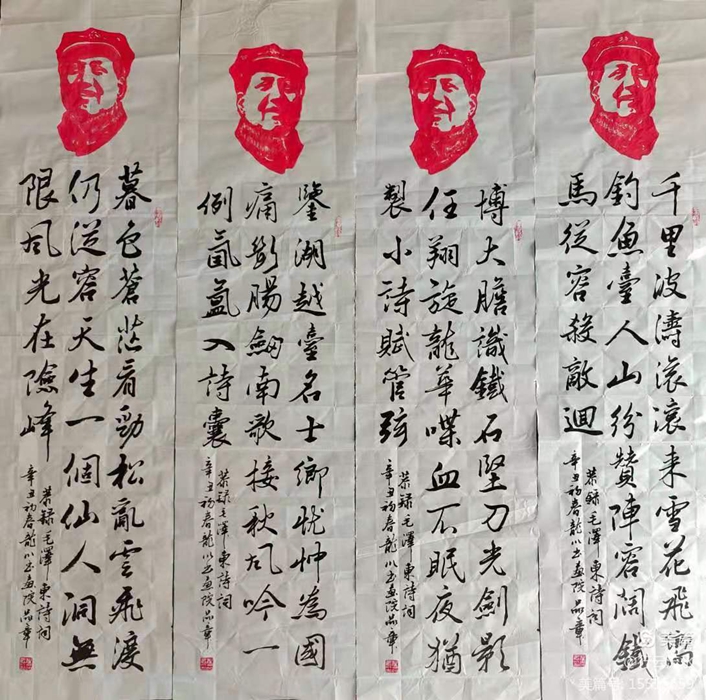 千里波濤滾滾来雪花飛向
釣魚臺人山紛贊陣容闊鐵
馬從容殺敵迴
恭録毛澤東詩詞
辛丑初春龍川书画院品章
博大膽識鐵石堅刀光劍影
任翔旋龍華喋血不眠夜猶
製小詩賦管弦
恭録毛澤東詩詞
辛丑初春龍川书画院品章
鑒湖越臺名士鄉憂忡為國
痛斷腸劍南歌接秋風吟一
例氤氳入詩囊
恭録毛澤東詩詞
辛丑初春龍川书画院品章
暮色蒼茫看勁松亂雲飛渡
仍從容天生一個仙人洞無
限風光在險峰
恭録毛澤東詩詞
辛丑初春龍川书画院品章
美篇号: